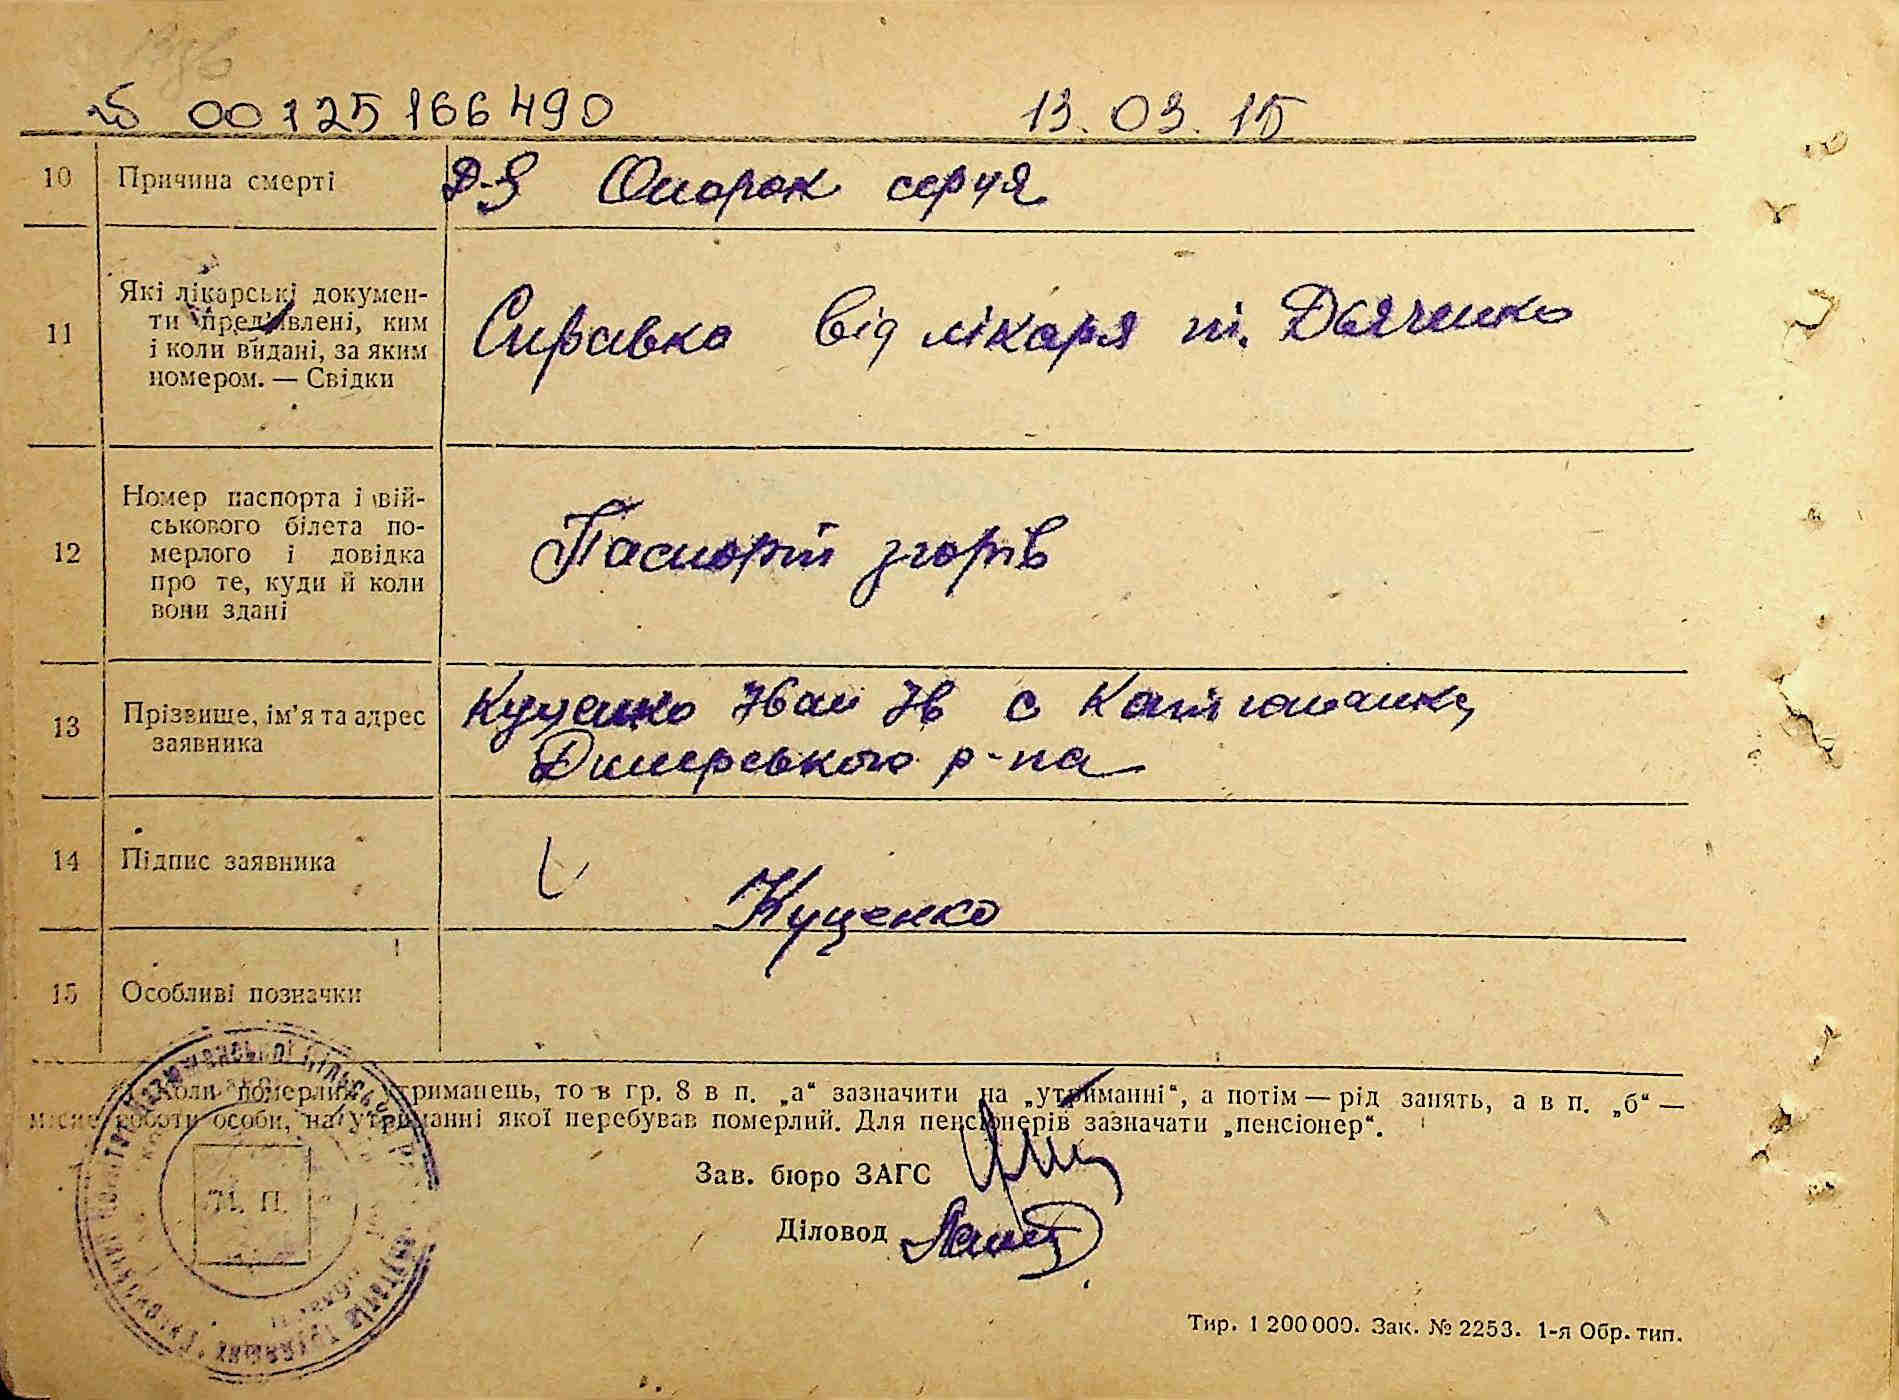 00125166490 13.03.15
10 Причина смерті
Д-З Опорок серця
11 Які лікарські докумен-
ти пред'явлені, ким
і коли видані, за яким
номером. — Свідки
Справка від лікаря т. Дяченко
12 Номер паспорта і вій-
ськового білета по-
мерлого і довідка
про те, куди й коли
вони здані
Паспорт згорів
13 Прізвище, ім'я та адрес
заявника
Куценко Іван Ів с Катюшанка,
Димерського р-на
14 Підпис заявника
Куценко
15 Особливі позначки
Коли померлий утриманець, то в гр. 8 в п. „а“ зазначити на „утриманні“, а потім — рід занять, а в п. „б“ —
місце роботи особи, на утриманні якої перебував померлий. Для пенсіонерів зазначати „пенсіонер“.
Зав. бюро ЗАГС
Діловод
М. П.
Тир. 1 200 000. Зак. № 2253. 1-я Обр. тип.